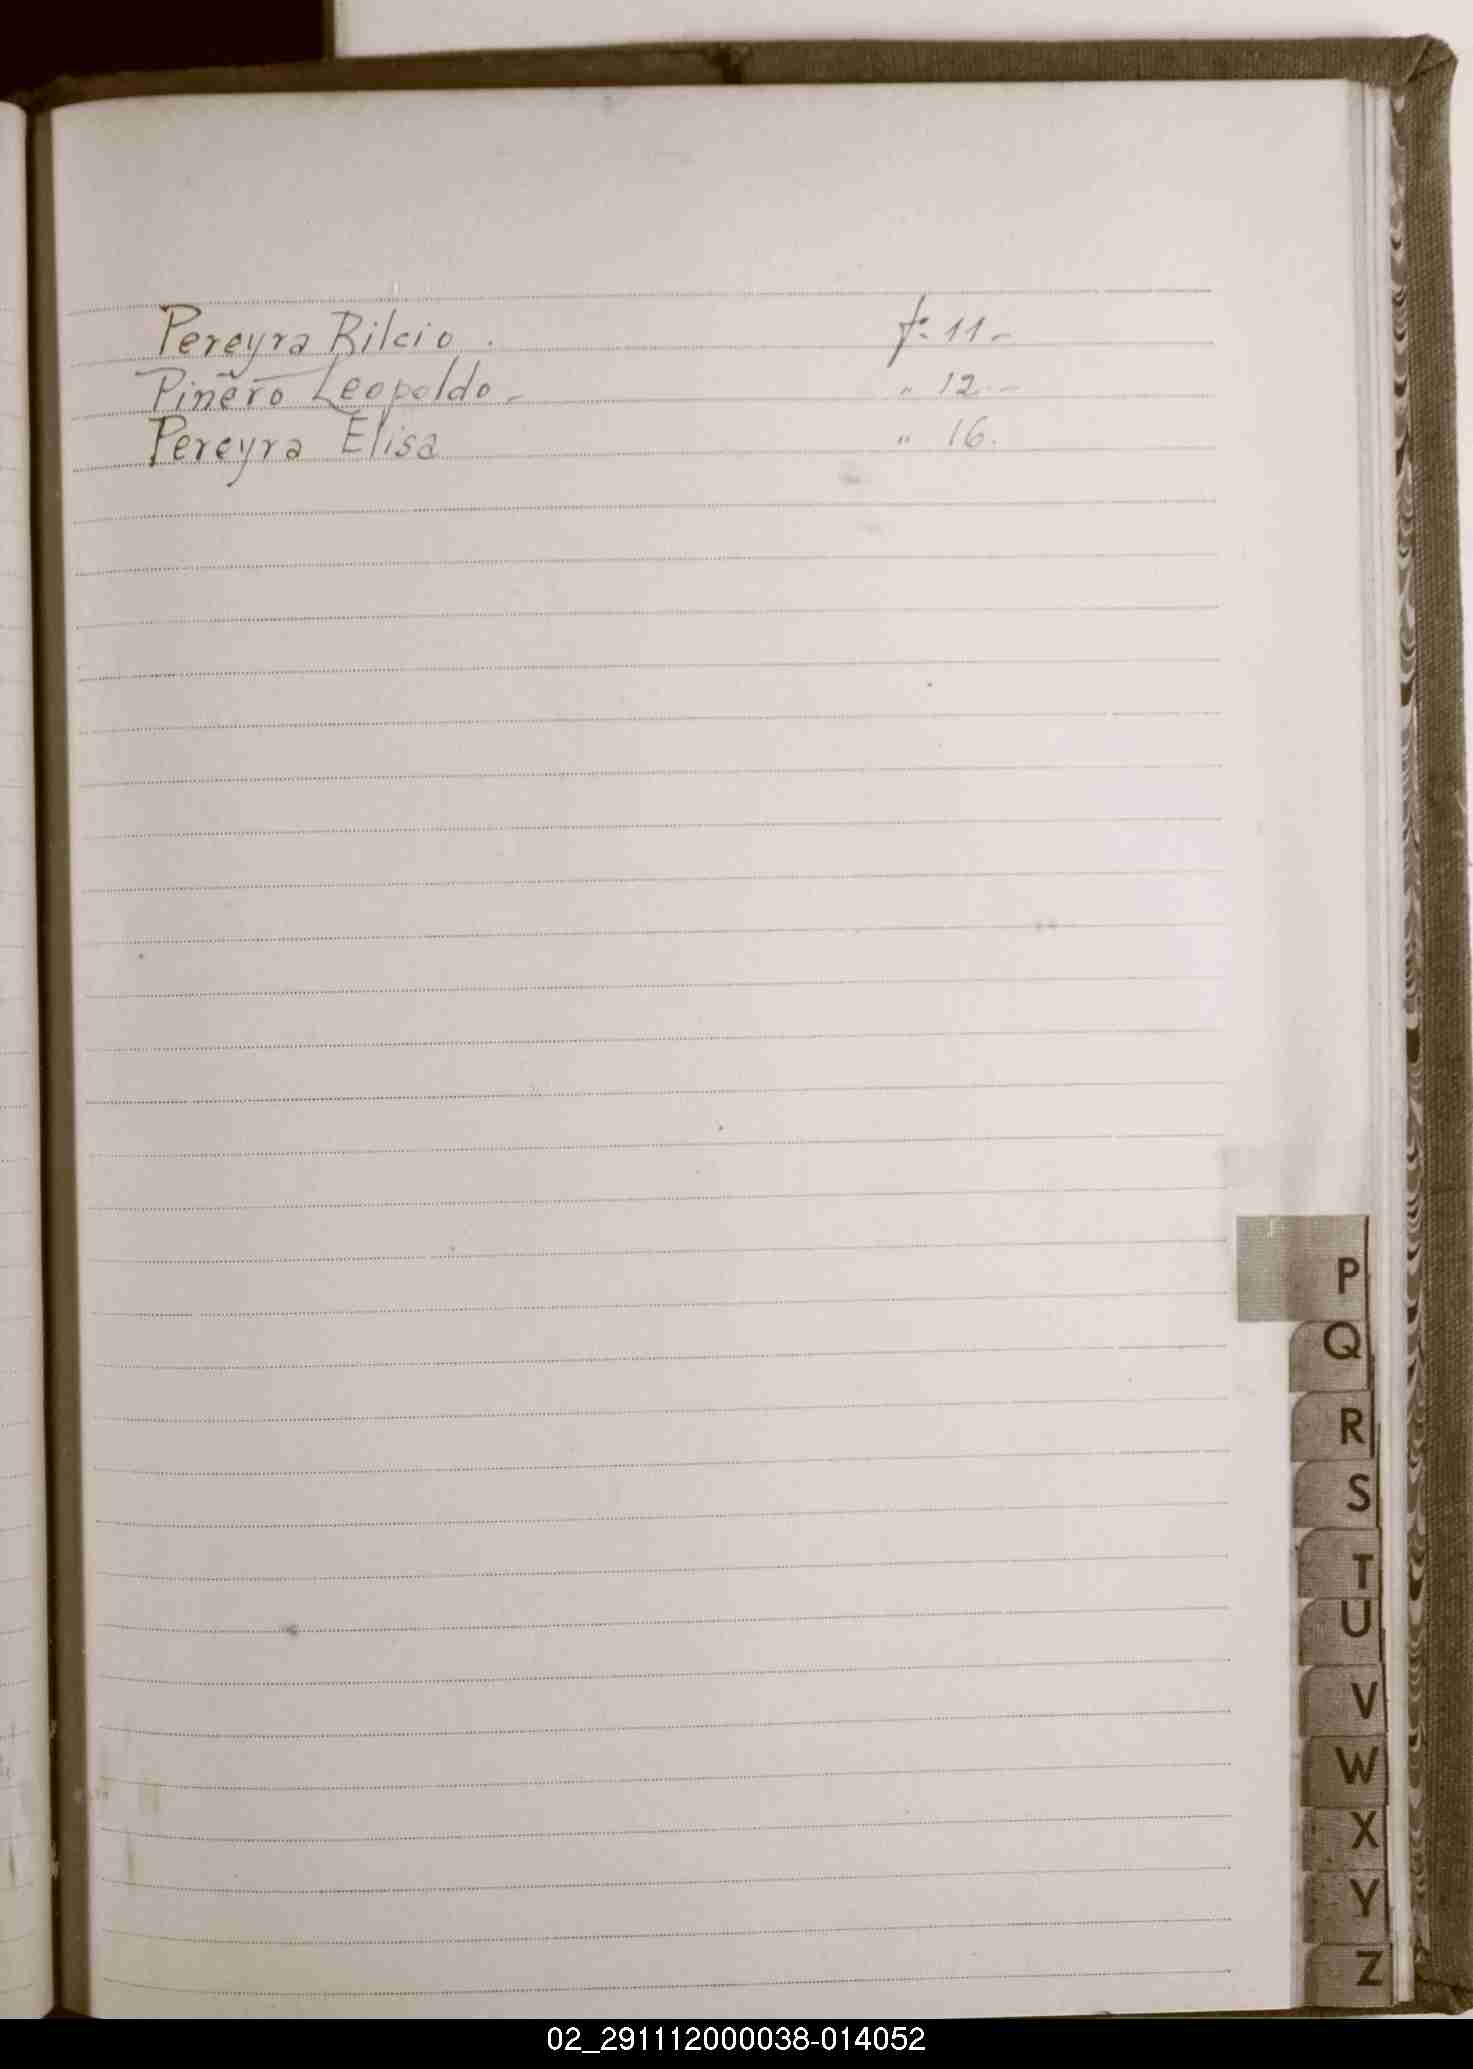 Pereyra Rilcio . fº 11 -
Piñero Leopoldo - " 12 -
Pereyra Elisa " 16.
P
Q
R
S
T
U
V
W
X
Y
Z
02_291112000038-014052